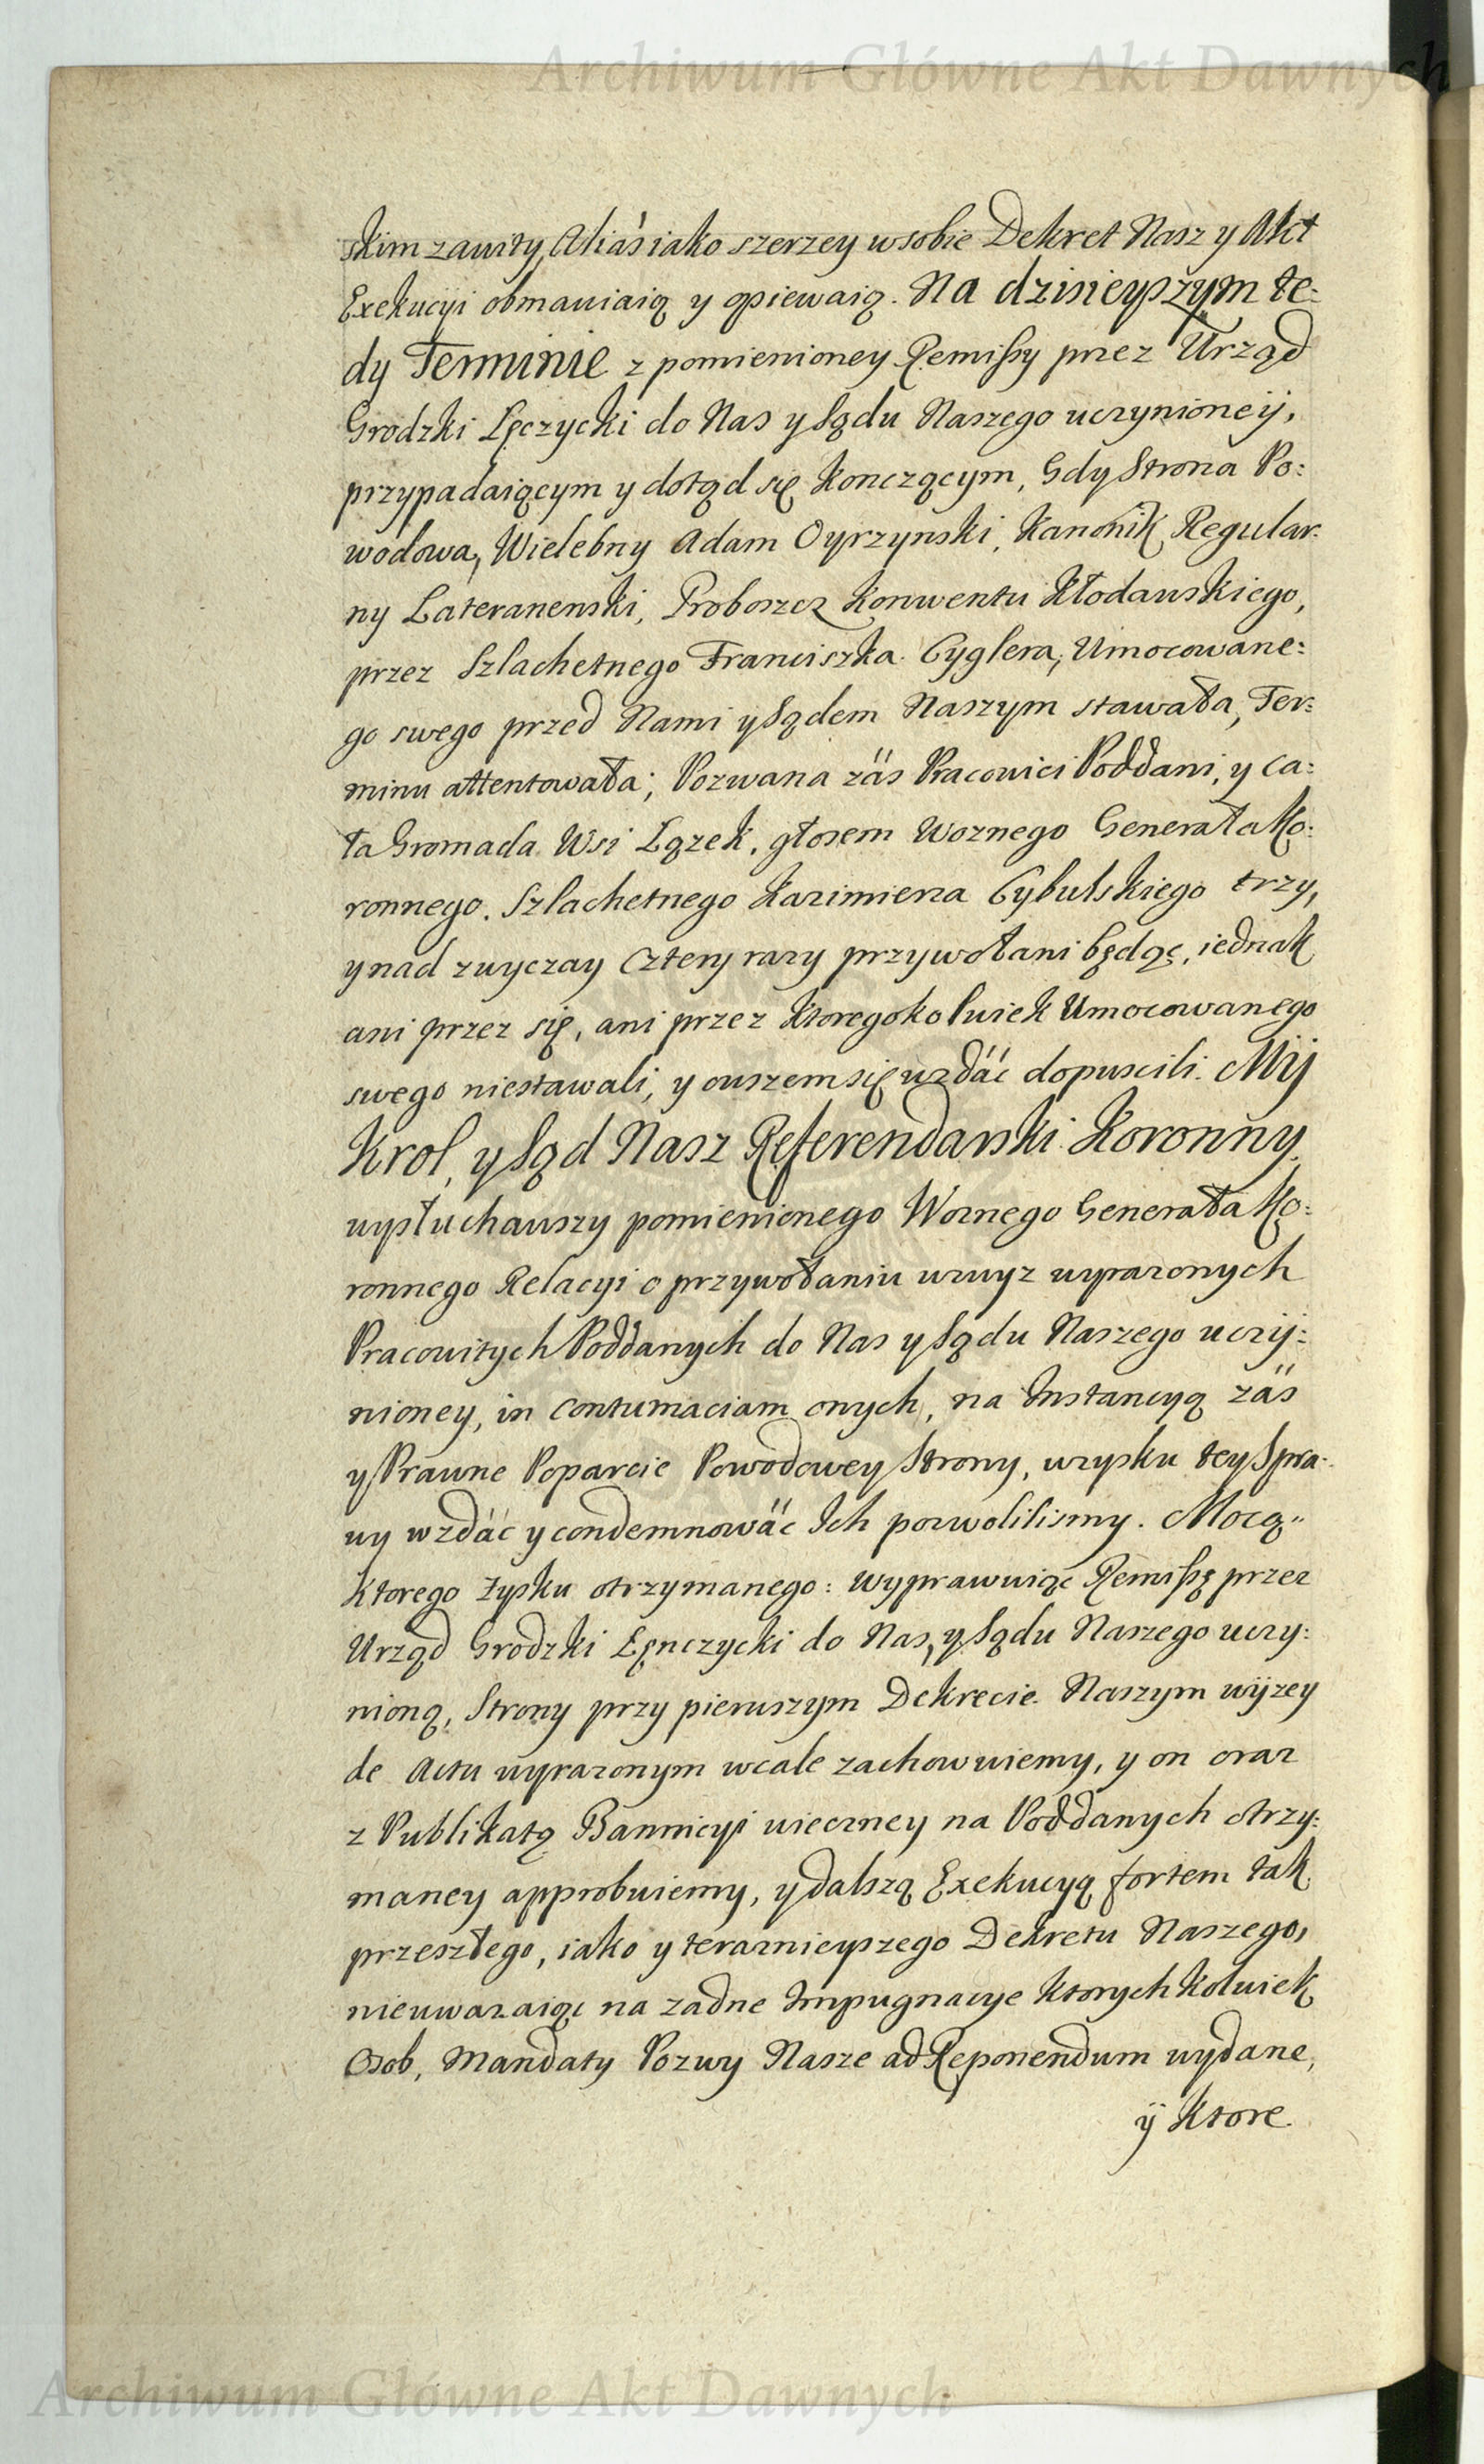 Archiwum Główne Akt Dawnych
skim zawity, Aliás iako szerzey w sobie Dekret Nasz y Akt
Exekucyi obmawiaią y opiewaią. Na dzisieyszym te:
dy Terminie z pomienioney Remissy przez Urząd
Grodzki Łęczycki do Nas y Sądu Naszego uczynioneÿ,
przypadaiącym y dotąd się konczącym, Gdy Strona Po:
wodowa, Wielebny Adam Oyrzynski, Kanonik Regular:
ny Lateranenski, Proboszcz Konwentu Kłodawskiego,
przez Szlachetnego Franciszka Cyglera, Umocowane:
go swego przed Nami y Sądem Naszym stawała, Ter:
minu attentowała; Pozwana zäs Pracowici Poddani, y ca:
ła Gromada Wsi Łązek, głosem Woznego Generała Ko:
ronnego. Szlachetnego Kazimierza Cybulskiego trzy,
y nad zwyczay cztery razy przywołani będąc, iednak
ani przez się, ani przez ktoregokolwiek Umocowanego
swego niestawali, y owszem się wzdáć dopuscili. My
Krol, y Sąd Nasz Referendarski Koronny,
wysłuchawszy pomienionego Woznego Generała Ko:
ronnego Relacyi o przywołaniu wzwyz wyrazonych
Pracowitych Poddanych do Nas y Sądu Naszego uczÿ:
nioney, in contumaciam onych, na Instancyą zäs
y Prawne Poparcie Powodowey Strony, wzysku tey Spra:
wy wzdáć y condemnowäc Ich pozwolilismy. Mocą
ktorego zysku otrzymanego: wyprawuiąc Remissę przez
Urząd Grodzki Łęnczycki do Nas, y Sądu Naszego uczy:
nioną, Strony przy pierwszym Dekrecie Naszym wÿzey
de Actu wyrazonym wcale zachowuiemy, y on oraz
z Publikatą Bannicyi wieczney na Poddanych otrzy:
maney approbuiemy, y dalszą Exekucyą fortem tak
przeszłego, iako y terazniejszego Dekretu Naszego,
nieuwazaiąc na zadne Impugnacye ktorychkolwiek
Osob, Mandaty Pozwy Nasze ad Reponendum wydane,
ÿ ktore
Archiwum Główne Akt Dawnych